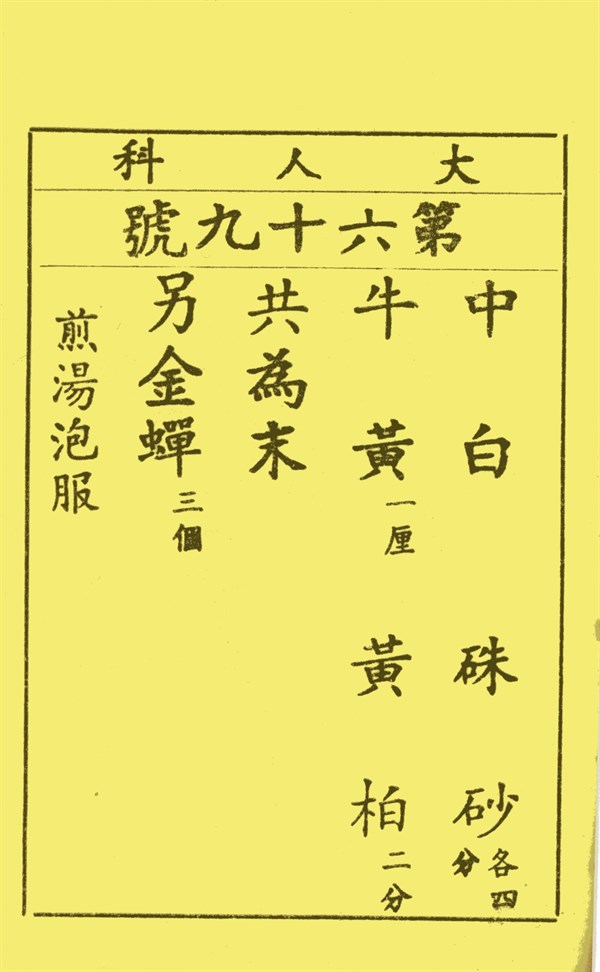 大人科
第六十九號
中白 硃砂各四分
牛黃一厘 黃柏二分
共為末
另金蟬三個
煎湯泡服